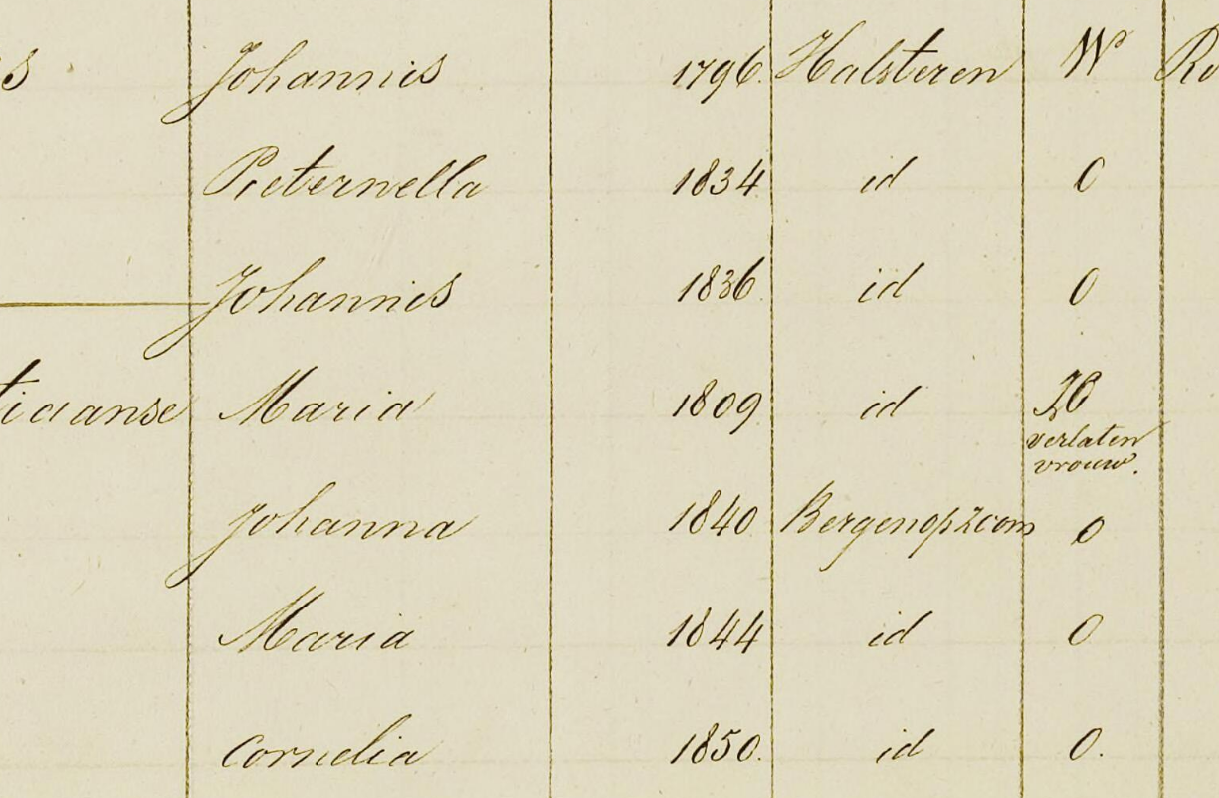 s Johannis 1796. Halsteren Wr
Pieternella 1834 id O
Johannis 1836. id O
tiaanse Maria 1809. id
verlaten
vrouw.
Johanna 1840 Bergenopzoom O
Maria 1844 id O
Cornelia 1850. id O.